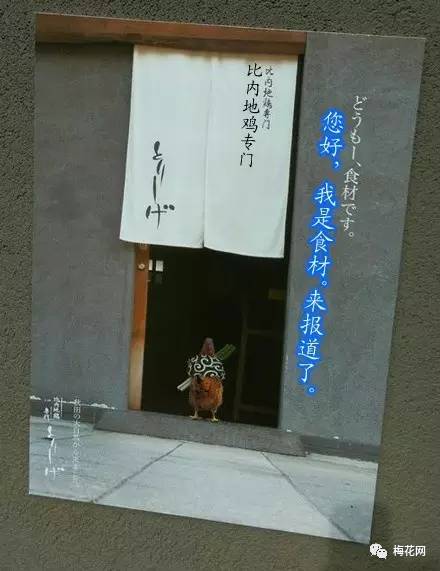 どうもー、食材です。
您好，我是食材。来报道了。
比内地鶏専門
比内地鸡专门
とりしげ
比内地鶏
専門
とりしげ
梅花网